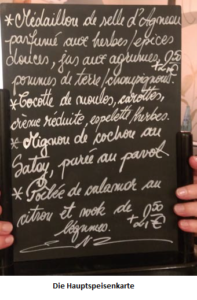 *Médaillon de selle d'agneau
parfumé aux herbes/épices
douces, jus aux agrumes,
pommes de terre/champignons.
*Cocotte de moules, carottes,
crème réduite, espelette/herbes.
*Mignon de cochon au
Satay, purée au pavot
*Poêlée de calamar au
citron et wok de
légumes.
Die Hauptspeisenkarte